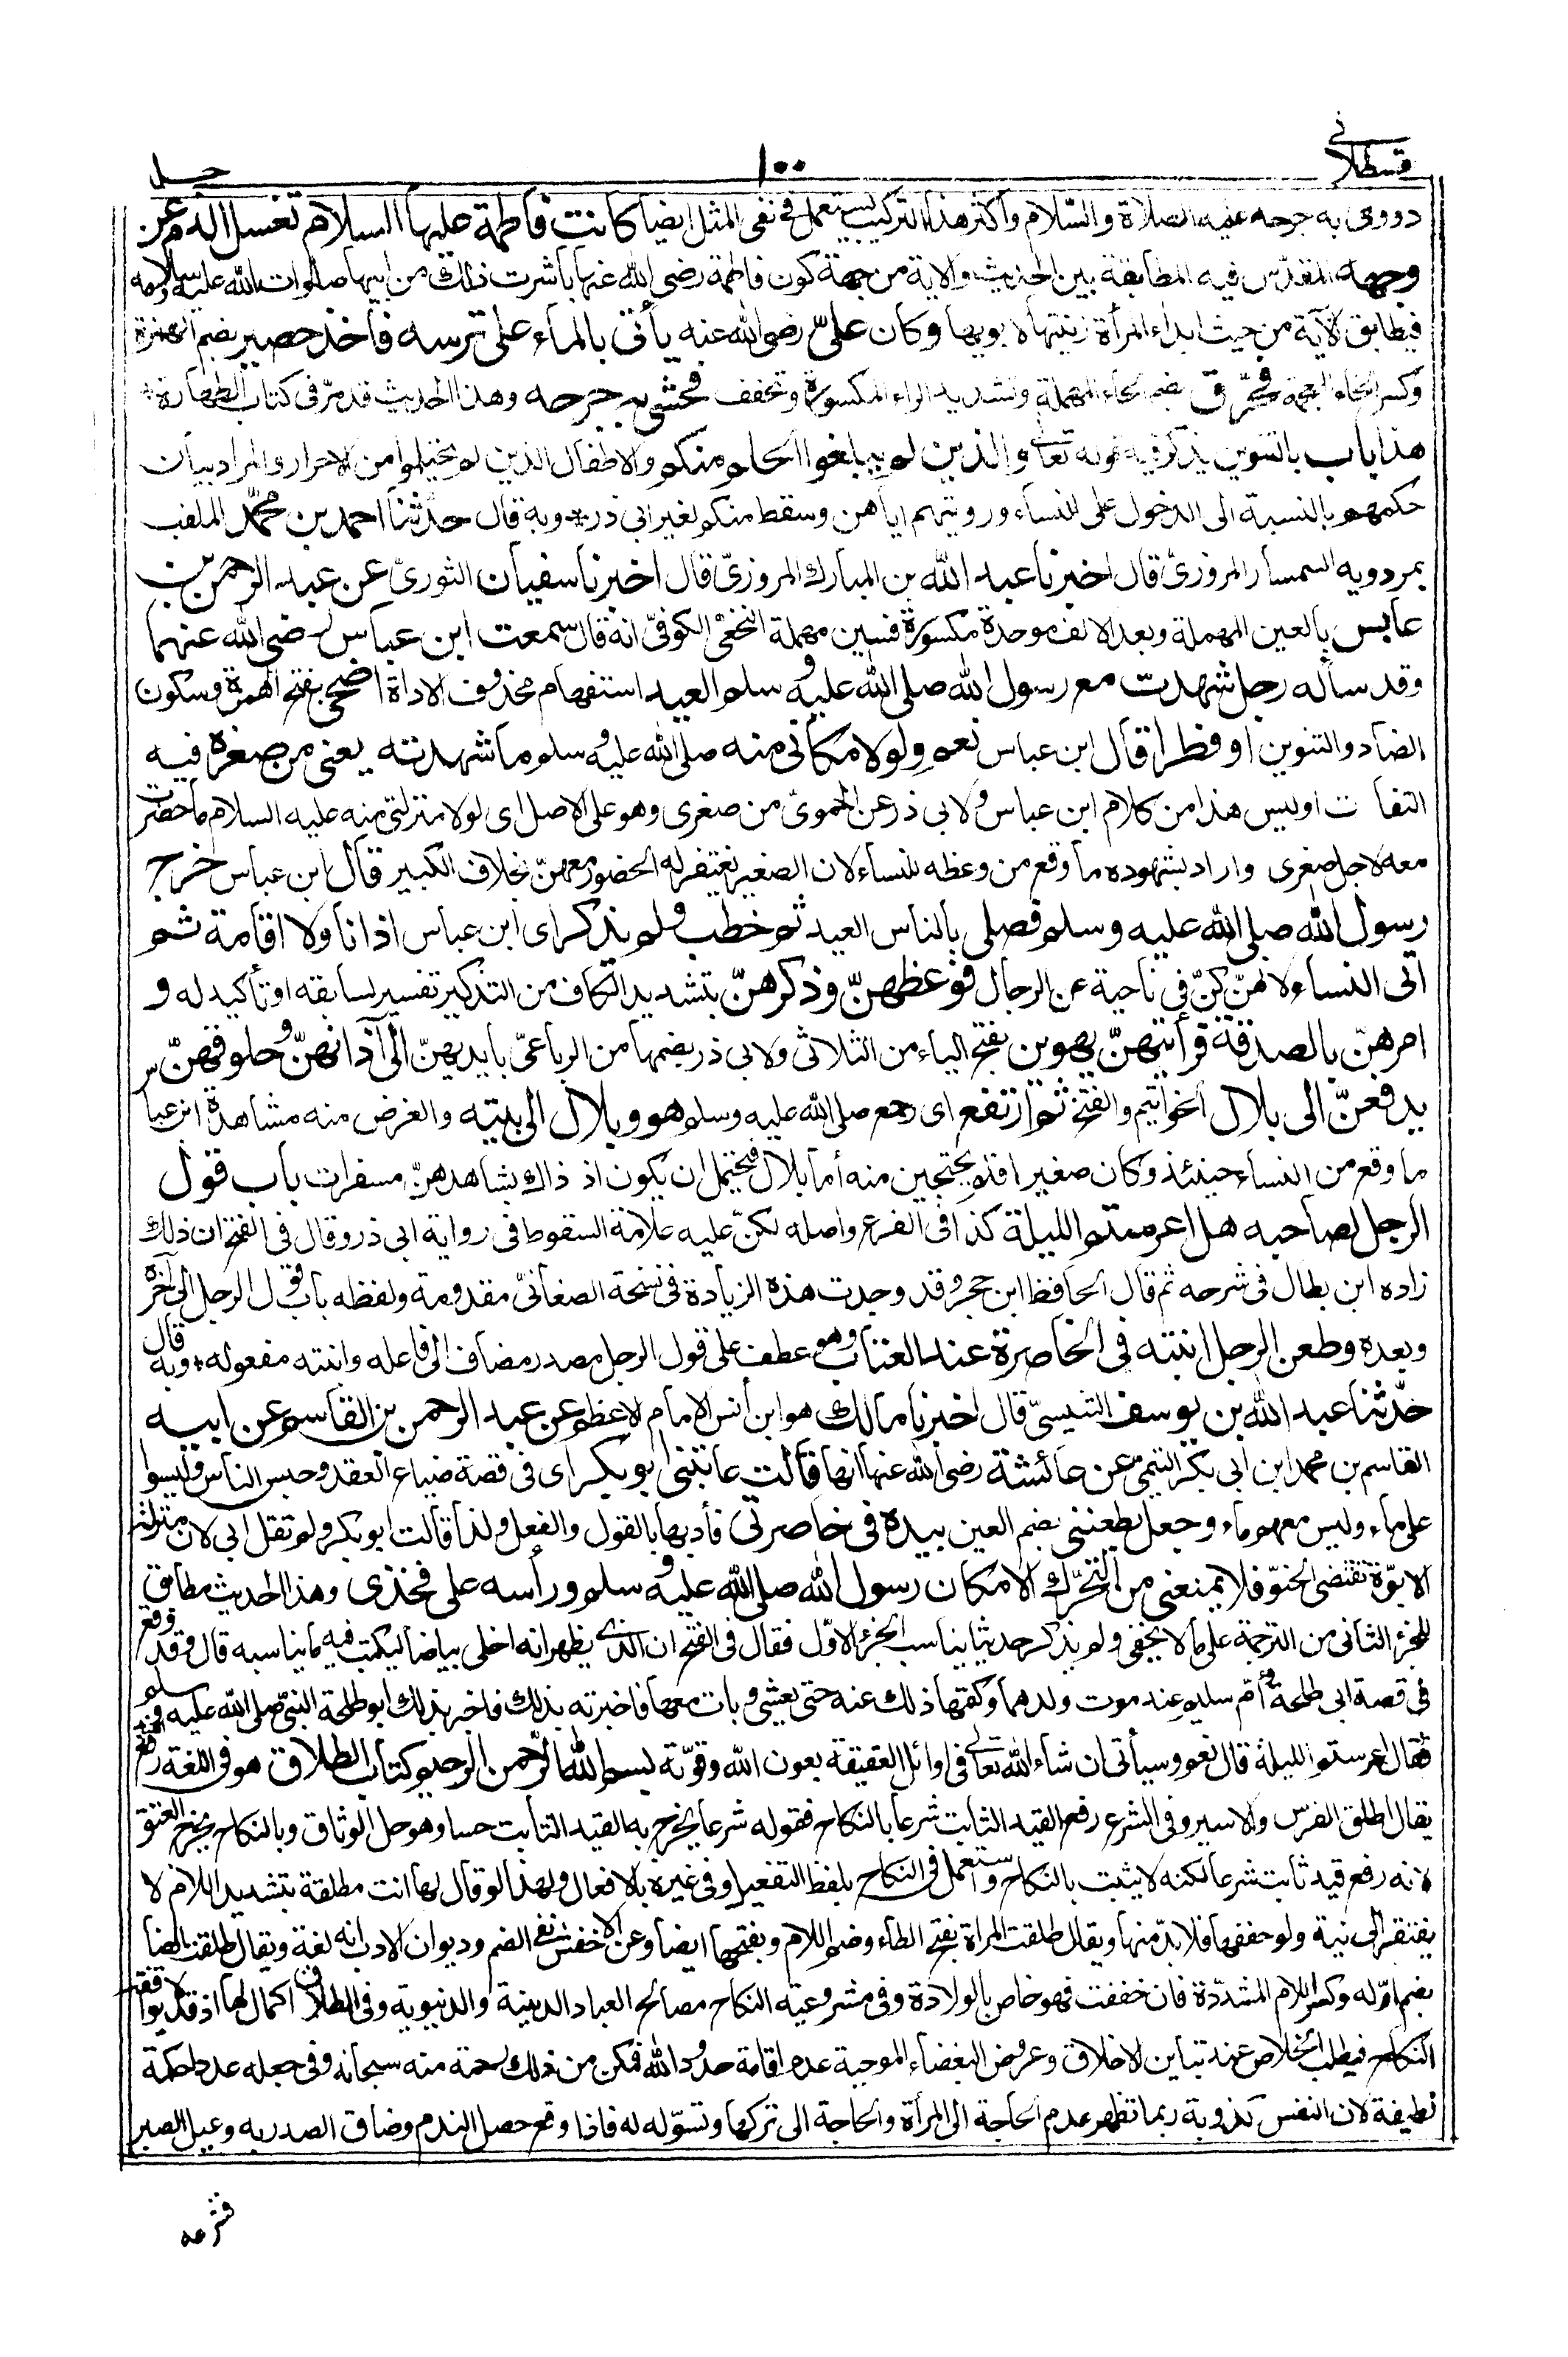 قسطلانى
١٠٠
جل
دووى به جرحه عليه الصلاة والسّلام وأكثر هذا التركيب يستعمل فى نفى المثل ايضا كانت فاطمة عليها السلام تغسل الدم عن
وجهه المقدّس فيه المطابقة بين الحديث والاية من جهة كون فاطمة رضى الله عنها باشرت ذلك من ابيها صلوات الله عليه وسلامه
فيطابق الآية من حيث ابداء المرأة زينتها لابويها وكان علىّ رضى الله عنه يأتى بالماء على ترسه فأخذ حصير بضم الهمزة
وكسر الخاء المعجمة فحرّق بضم الحاء المهملة وتشديد الراء المكسورة وتخفف فحشى به جرحه وهذا الحديث قد مرّ فى كتاب الطهارة *
هذا باب بالتنوين يذكر فيه قوله تعالى والذين لم يبلغوا الحلم منكم والاطفال الذين لم يحتلموا من الاحرار والمراد بيان
حكمهم بالنسبة الى الدخول على النساء ورويتهم اياهن وسقط منكم لغير ابى ذر * وبه قال حدّثنا احمد بن محمّد الملقب
بمردويه السمسار المروزىّ قال اخبرنا عبد الله بن المبارك المروزىّ قال اخبرنا سفيان الثورىّ عن عبد الرحمن بن
عابس بالعين المهملة وبعد الالف موحدة مكسورة فسين مهملة النخعىّ الكوفىّ انه قال سمعت ابن عباس رضى الله عنهما
وقد سأله رجل شهدت مع رسول الله صلى الله عليه وسلم العيد استفهام محذوف الاداة اضحى بفتح الهمزة وسكون
الضاد والتنوين او فطرا قال ابن عباس نعم ولولا مكانى منه صلى الله عليه وسلم ما شهدته يعنى من صغره فيه
التفات او ليس هذا من كلام ابن عباس ولابى ذر عن الحموىّ من صغرى وهو على الاصل اى لولا منزلتى منه عليه السلام ما حضرت
معه لاجل صغرى واراد بشهوده ما وقع من وعظه للنساء لان الصغير يغتفر له الحضور معهنّ بخلاف الكبير قال ابن عباس خرج
رسول الله صلى الله عليه وسلم فصلى بالناس العيد ثم خطب ولم يذكر اى ابن عباس اذانا ولا اقامة ثم
اتى النساء لانهنّ كنّ فى ناحية عن الرجال فوعظهنّ وذكرهنّ بتشديد الكاف من التذكير تفسير لسابقه او تأكيد له و
امرهنّ بالصدقة فرأيتهنّ يهوين بفتح الياء من الثلاثى ولابى ذر بضمها من الرباعىّ بايديهنّ الى آذانهنّ وحلوقهنّ
يدفعنّ الى بلال الخواتيم والفتخ ثم ارتفع اى رجع صلى الله عليه وسلم هو وبلال الى بيته والغرض منه مشاهدة ابن عبا
ما وقع من النساء حينئذ وكان صغيرا فلم يحتجبن منه أما بلال فيحتمل ان يكون اذ ذاك يشاهدهنّ مسفرات باب قول
الرجل لصاحبه هل اعرستم الليلة كذا فى الفرع واصله لكنّ عليه علامة السقوط فى رواية ابى ذر وقال فى الفتح ان ذلك
زاده ابن بطال فى شرحه ثم قال الحافظ ابن حجر وقد وجدت هذه الزيادة فى نسخة الصغانىّ مقدومة ولفظه باب قول الرجل الى آخره
وبعده وطعن الرجل ابنته فى الخاصرة عند العتاب وهو عطف على قول الرجل مصدر مضاف الى فاعله وابنته مفعوله * وبه قال
حدّثنا عبد الله بن يوسف التنيسىّ قال اخبرنا مالك هو ابن أنس الامام الاعظم عن عبد الرحمن بن القاسم عن ابيه
القاسم بن محمد ابن ابى بكر التيمىّ عن عائشة رضى الله عنها انها قالت عاتبنى ابو بكر اى فى قصة ضياع العقد وحبس الناس وليسوا
على ماء وليس معهم ماء وجعل يطعننى بضم العين بيده فى خاصرتى فأدبها بالقول والفعل ولذا قالت ابو بكر ولم تقل ابى لان منزلة
الابوّة تقتضى الحنوّ فلا يمنعنى من التحرّك الا مكان رسول الله صلى الله عليه وسلم ورأسه على فخذى وهذا الحديث مطابق
للجزء الثانى من الترجمة على ما لا يخفى ولم يذكر حديثا يناسب الجزء الاوّل فقال فى الفتح ان الذى يظهر انه اخلى بياضا ليكتب فيه ما يناسبه قال وقد وقع
فى قصة ابى طلحة وأمّ سليم عند موت ولدهما وكتمها ذلك عنه حتى تعشى وبات معها فاخبرته بذلك فاخبر بذلك ابو طلحة النبىّ صلى الله عليه وسلم
فقال اعرستم الليلة قال نعم وسيأتى ان شاء الله تعالى فى اوائل العقيقة بعون الله وقوّته بسم الله الرّحمن الرحيم كتاب الطلاق هو فى اللغة رفع القيد
يقال اطلق الفرس والاسير وفى الشرع رفع القيد الثابت شرعا بالنكاح فقوله شرعا يخرج به القيد الثابت حسا وهو حل الوثاق وبالنكاح يخرج العتق
لانه رفع قيد ثابت شرعا لكنه لا يثبت بالنكاح واستعمل فى النكاح بلفظ التفعيل وفى غيره بالافعال ولهذا لو قال لها انت مطلقة بتشديد اللام لا
يفتقر الى نية ولو خففها فلا بدّ منها ويقال طلقت المراة بفتح الطاء وضم اللام وبفتحها ايضا وعن الاخفش نفى الضم وديوان الادب انه لغة ويقال طلقت ايضا
بضم اوّله وكسر اللام المشدّدة فان خففت فهو خاص بالولادة وفى مشروعية النكاح مصالح العباد الدينية والدنيوية وفى الطلاق اكمال لها اذ قد لا يوافقه
النكاح فيطلب الخلاص عند تباين الاخلاق وعروض البغضاء الموجبة عدم اقامة حدود الله فمكن من ذلك رحمة منه سبحانه وفى جعله عدد احكمة
لطيفة لان النفس كذوبة ربما تظهر عدم الحاجة الى المرأة والحاجة الى تركها وتسوّله له فاذا وقع حصل الندم وضاق الصدر به وعيل الصبر
فشرعه